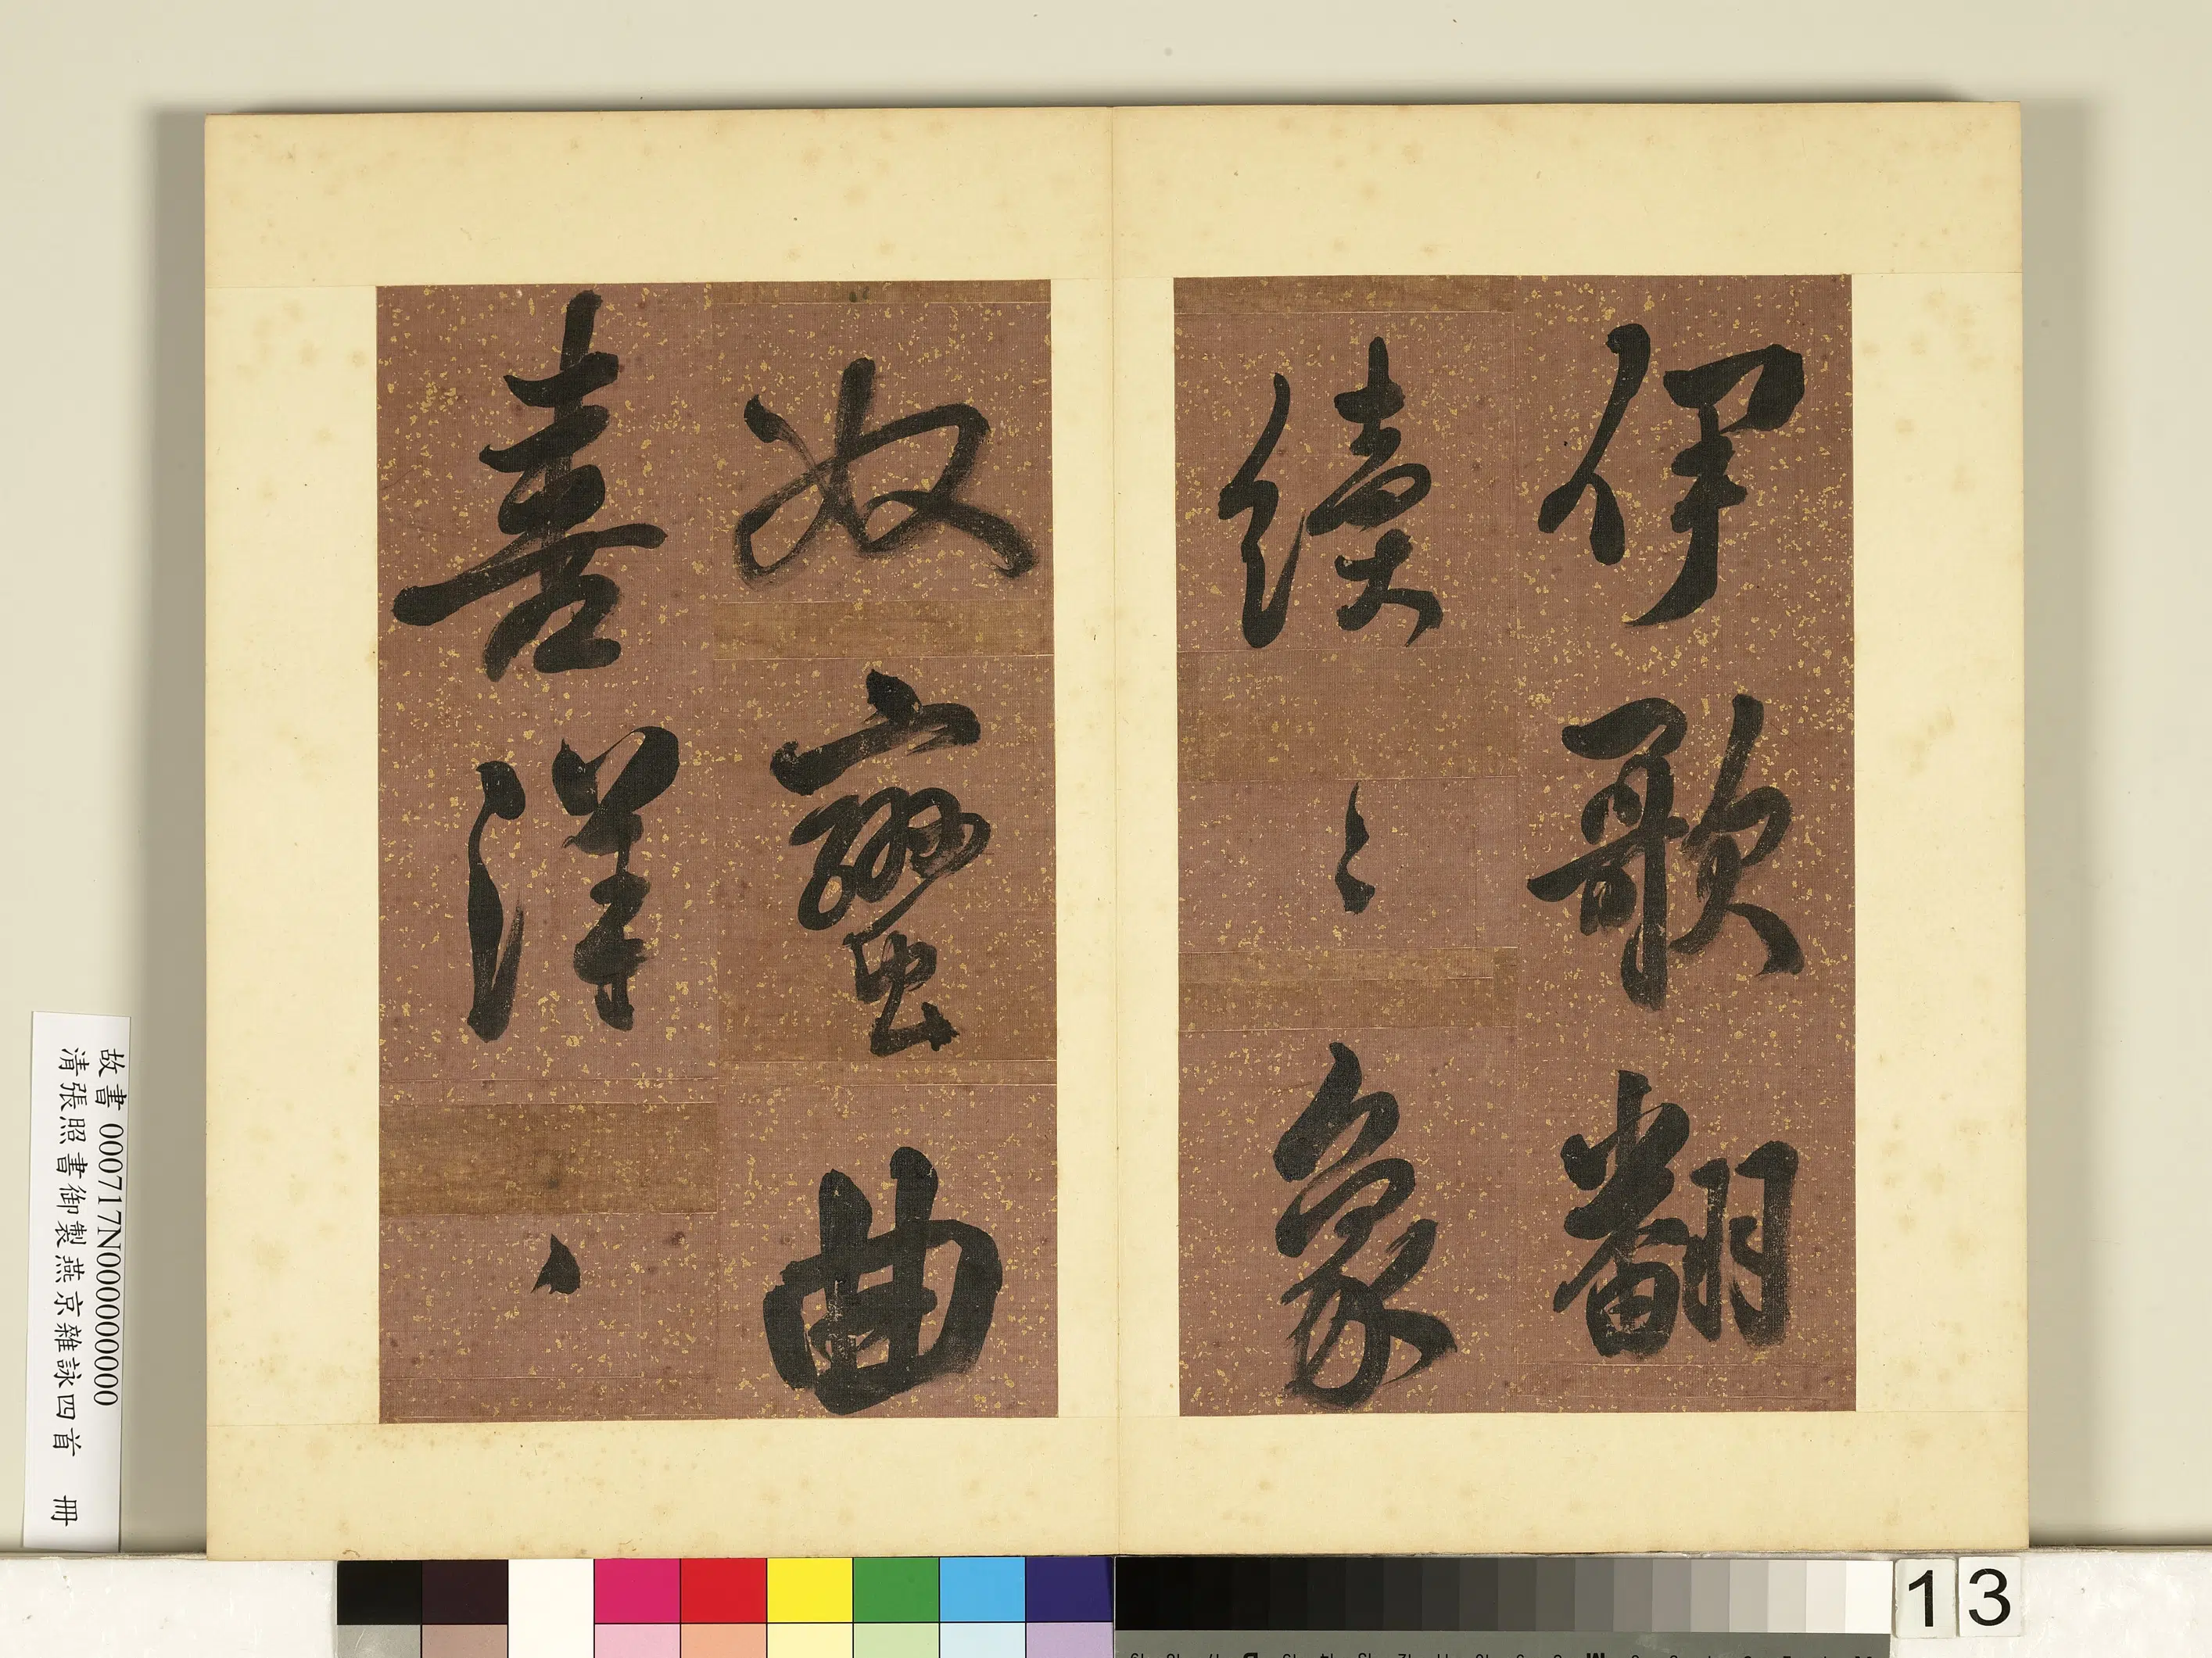 伊歌翻
續〻象
奴蠻曲
喜洋〻
故書 000717N000000000
清張照書御製燕京雜詠四首 冊
13